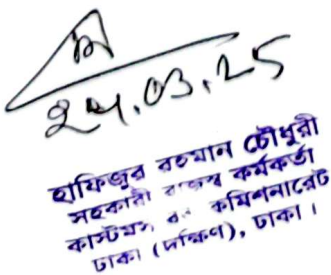 24.03.25
হাফিজুর রহমান চৌধুরী
সহকারী রাজস্ব কর্মকর্তা
কাস্টমস কমিশনারেট
ঢাকা (দক্ষিণ), ঢাকা।